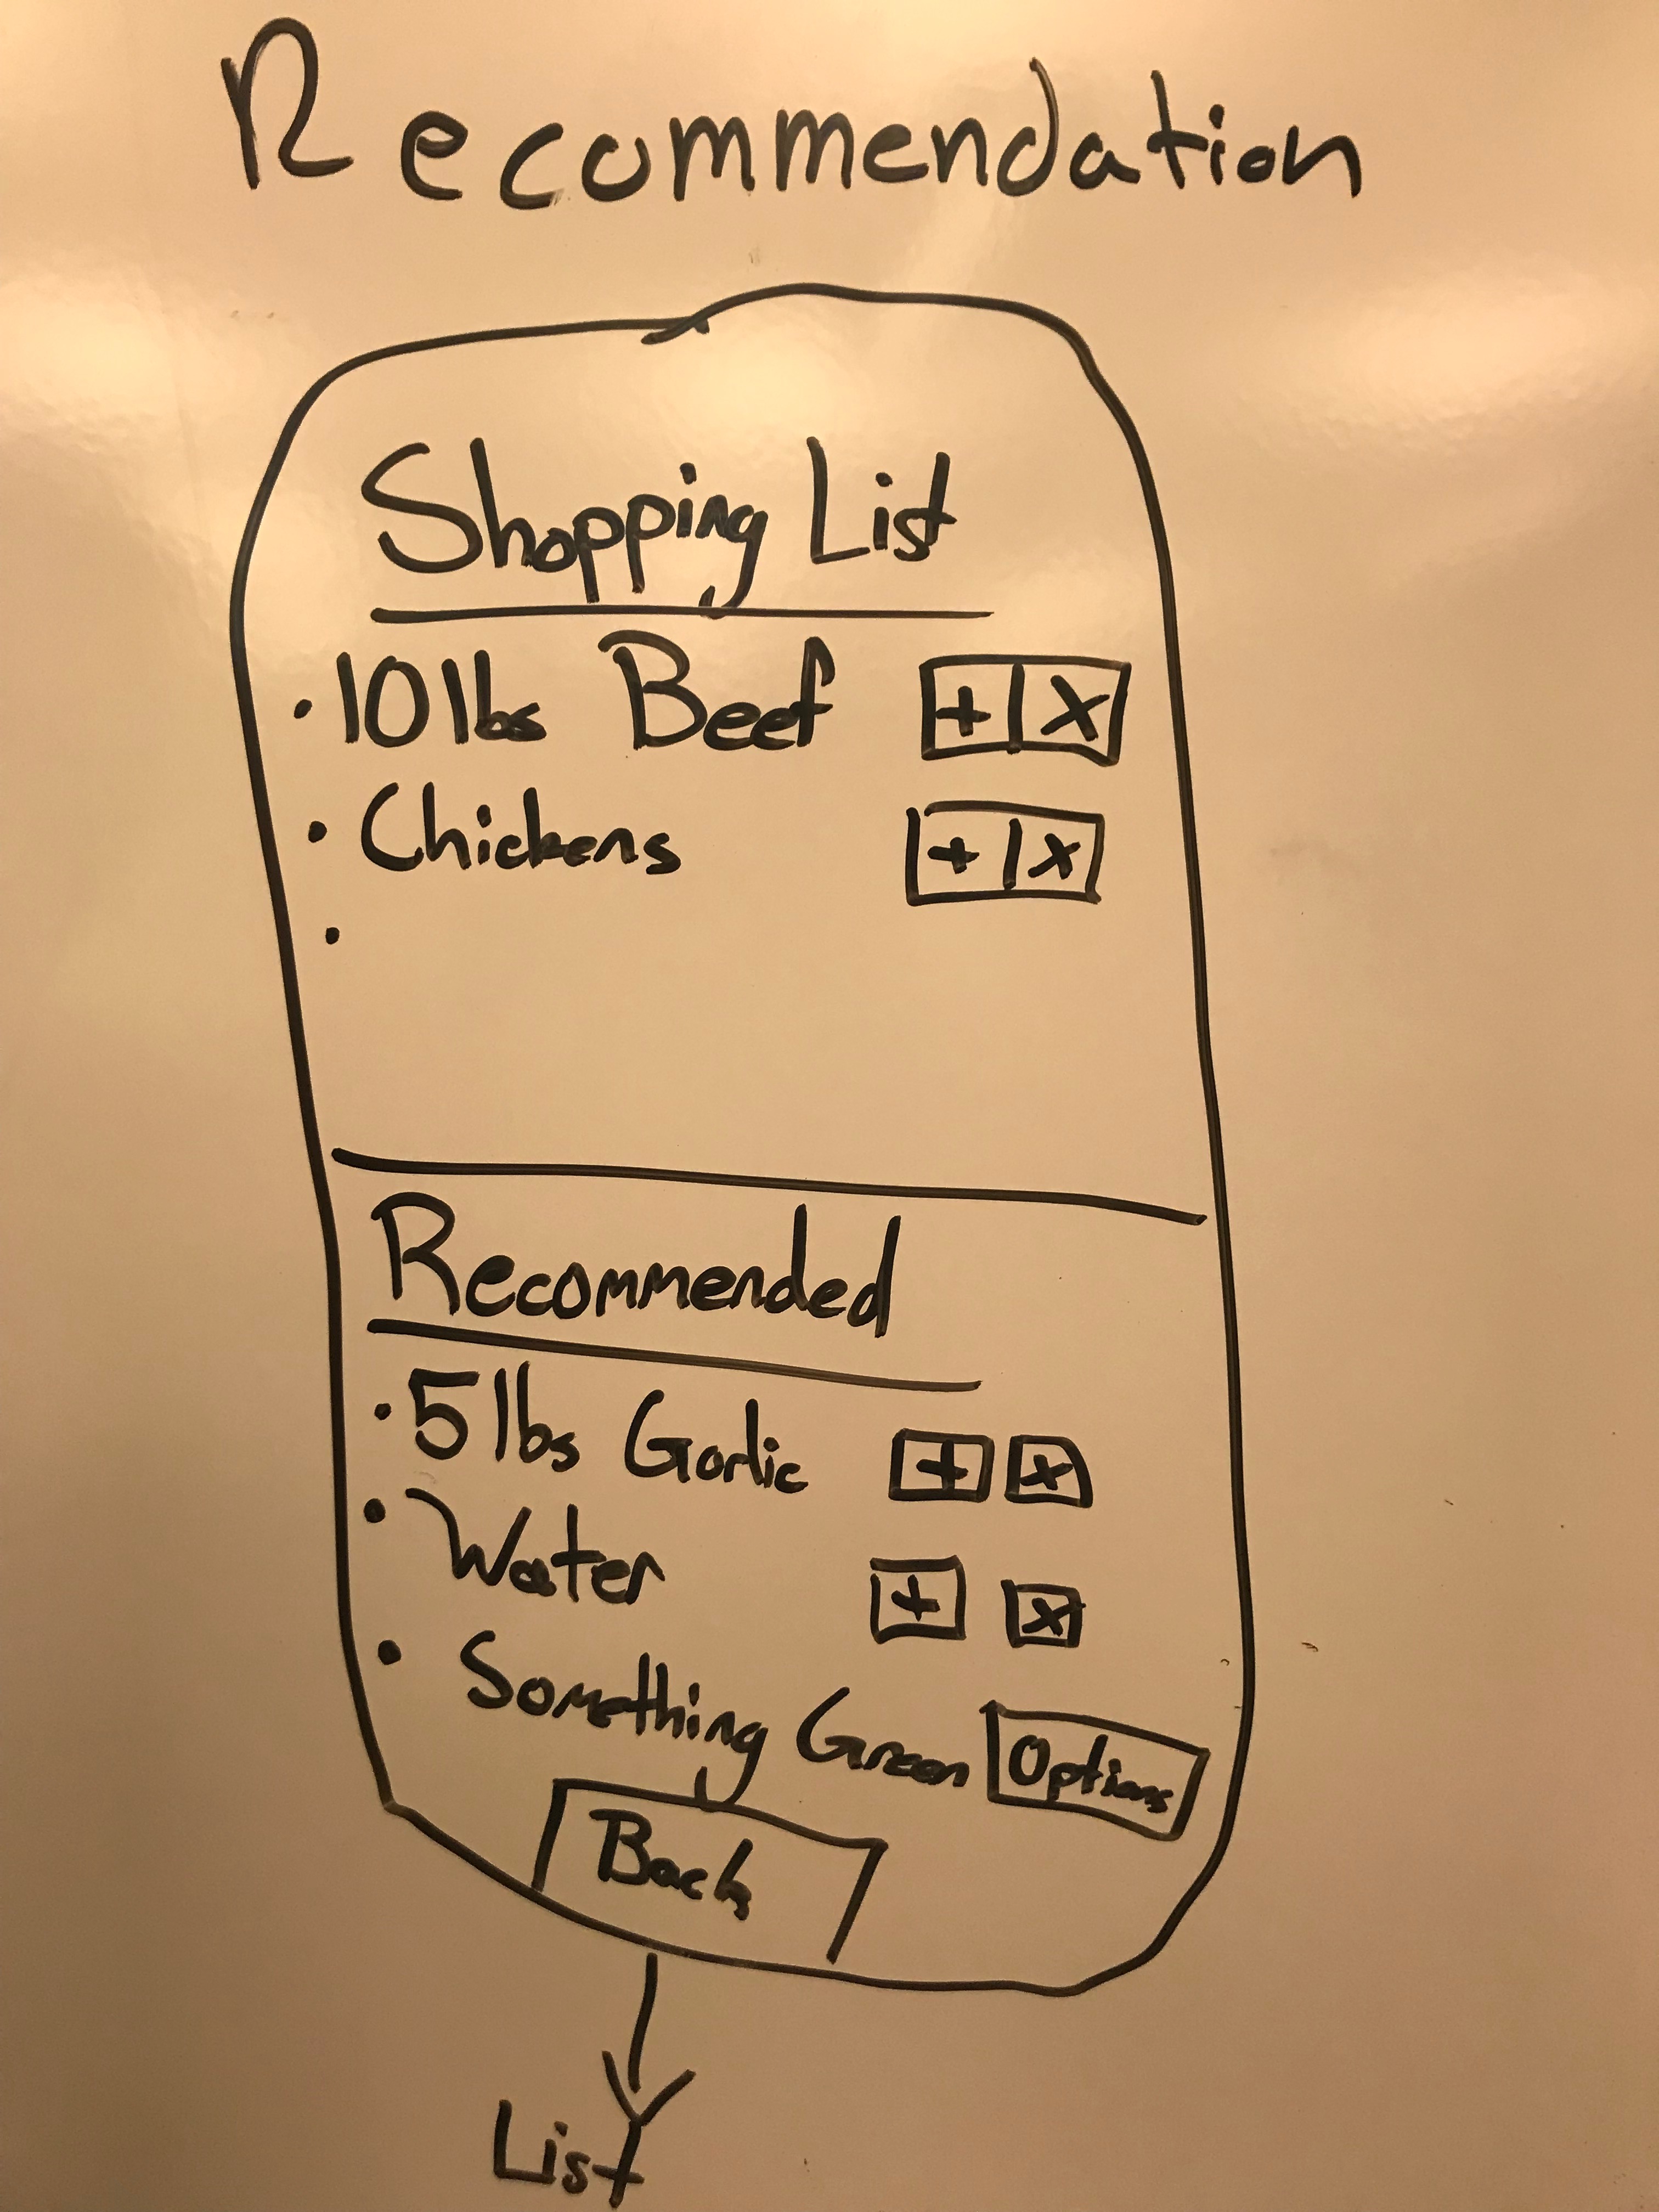 Recommendation
Shopping List
• 10 lbs Beef + X
• Chickens + X
•
Recommended
• 5 lbs Garlic + X
• Water + X
• Something Green Options
Back
List